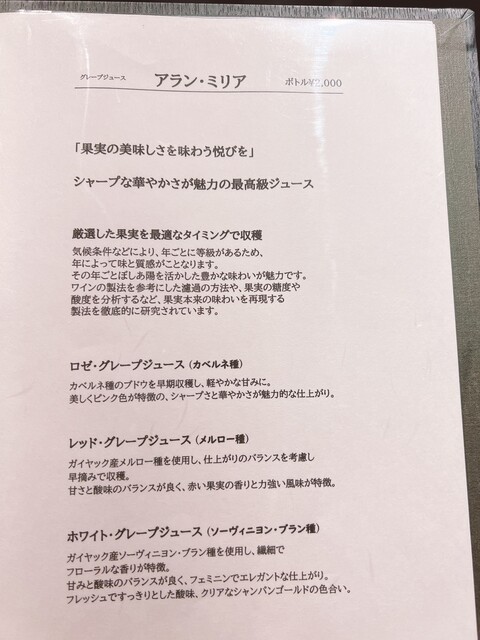 グレープジュース アラン・ミリア ボトル¥2,000
「果実の美味しさを味わう悦びを」
シャープな華やかさが魅力の最高級ジュース
厳選した果実を最適なタイミングで収穫
気候条件などにより、年ごとに等級があるため、
年によって味と質感がことなります。
その年ごとぽしあ陽を活かした豊かな味わいが魅力です。
ワインの製法を参考にした濾過の方法や、果実の糖度や
酸度を分析するなど、果実本来の味わいを再現する
製法を徹底的に研究されています。
ロゼ・グレープジュース (カベルネ種)
カベルネ種のブドウを早期収穫し、軽やかな甘みに。
美しくピンク色が特徴の、シャープさと華やかさが魅力的な仕上がり。
レッド・グレープジュース (メルロー種)
ガイヤック産メルロー種を使用し、仕上がりのバランスを考慮し
早摘みで収穫。
甘さと酸味のバランスが良く、赤い果実の香りと力強い風味が特徴。
ホワイト・グレープジュース (ソーヴィニヨン・ブラン種)
ガイヤック産ソーヴィニヨン・ブラン種を使用し、繊細で
フローラルな香りが特徴。
甘みと酸味のバランスが良く、フェミニンでエレガントな仕上がり。
フレッシュですっきりとした酸味、クリアなシャンパンゴールドの色合い。